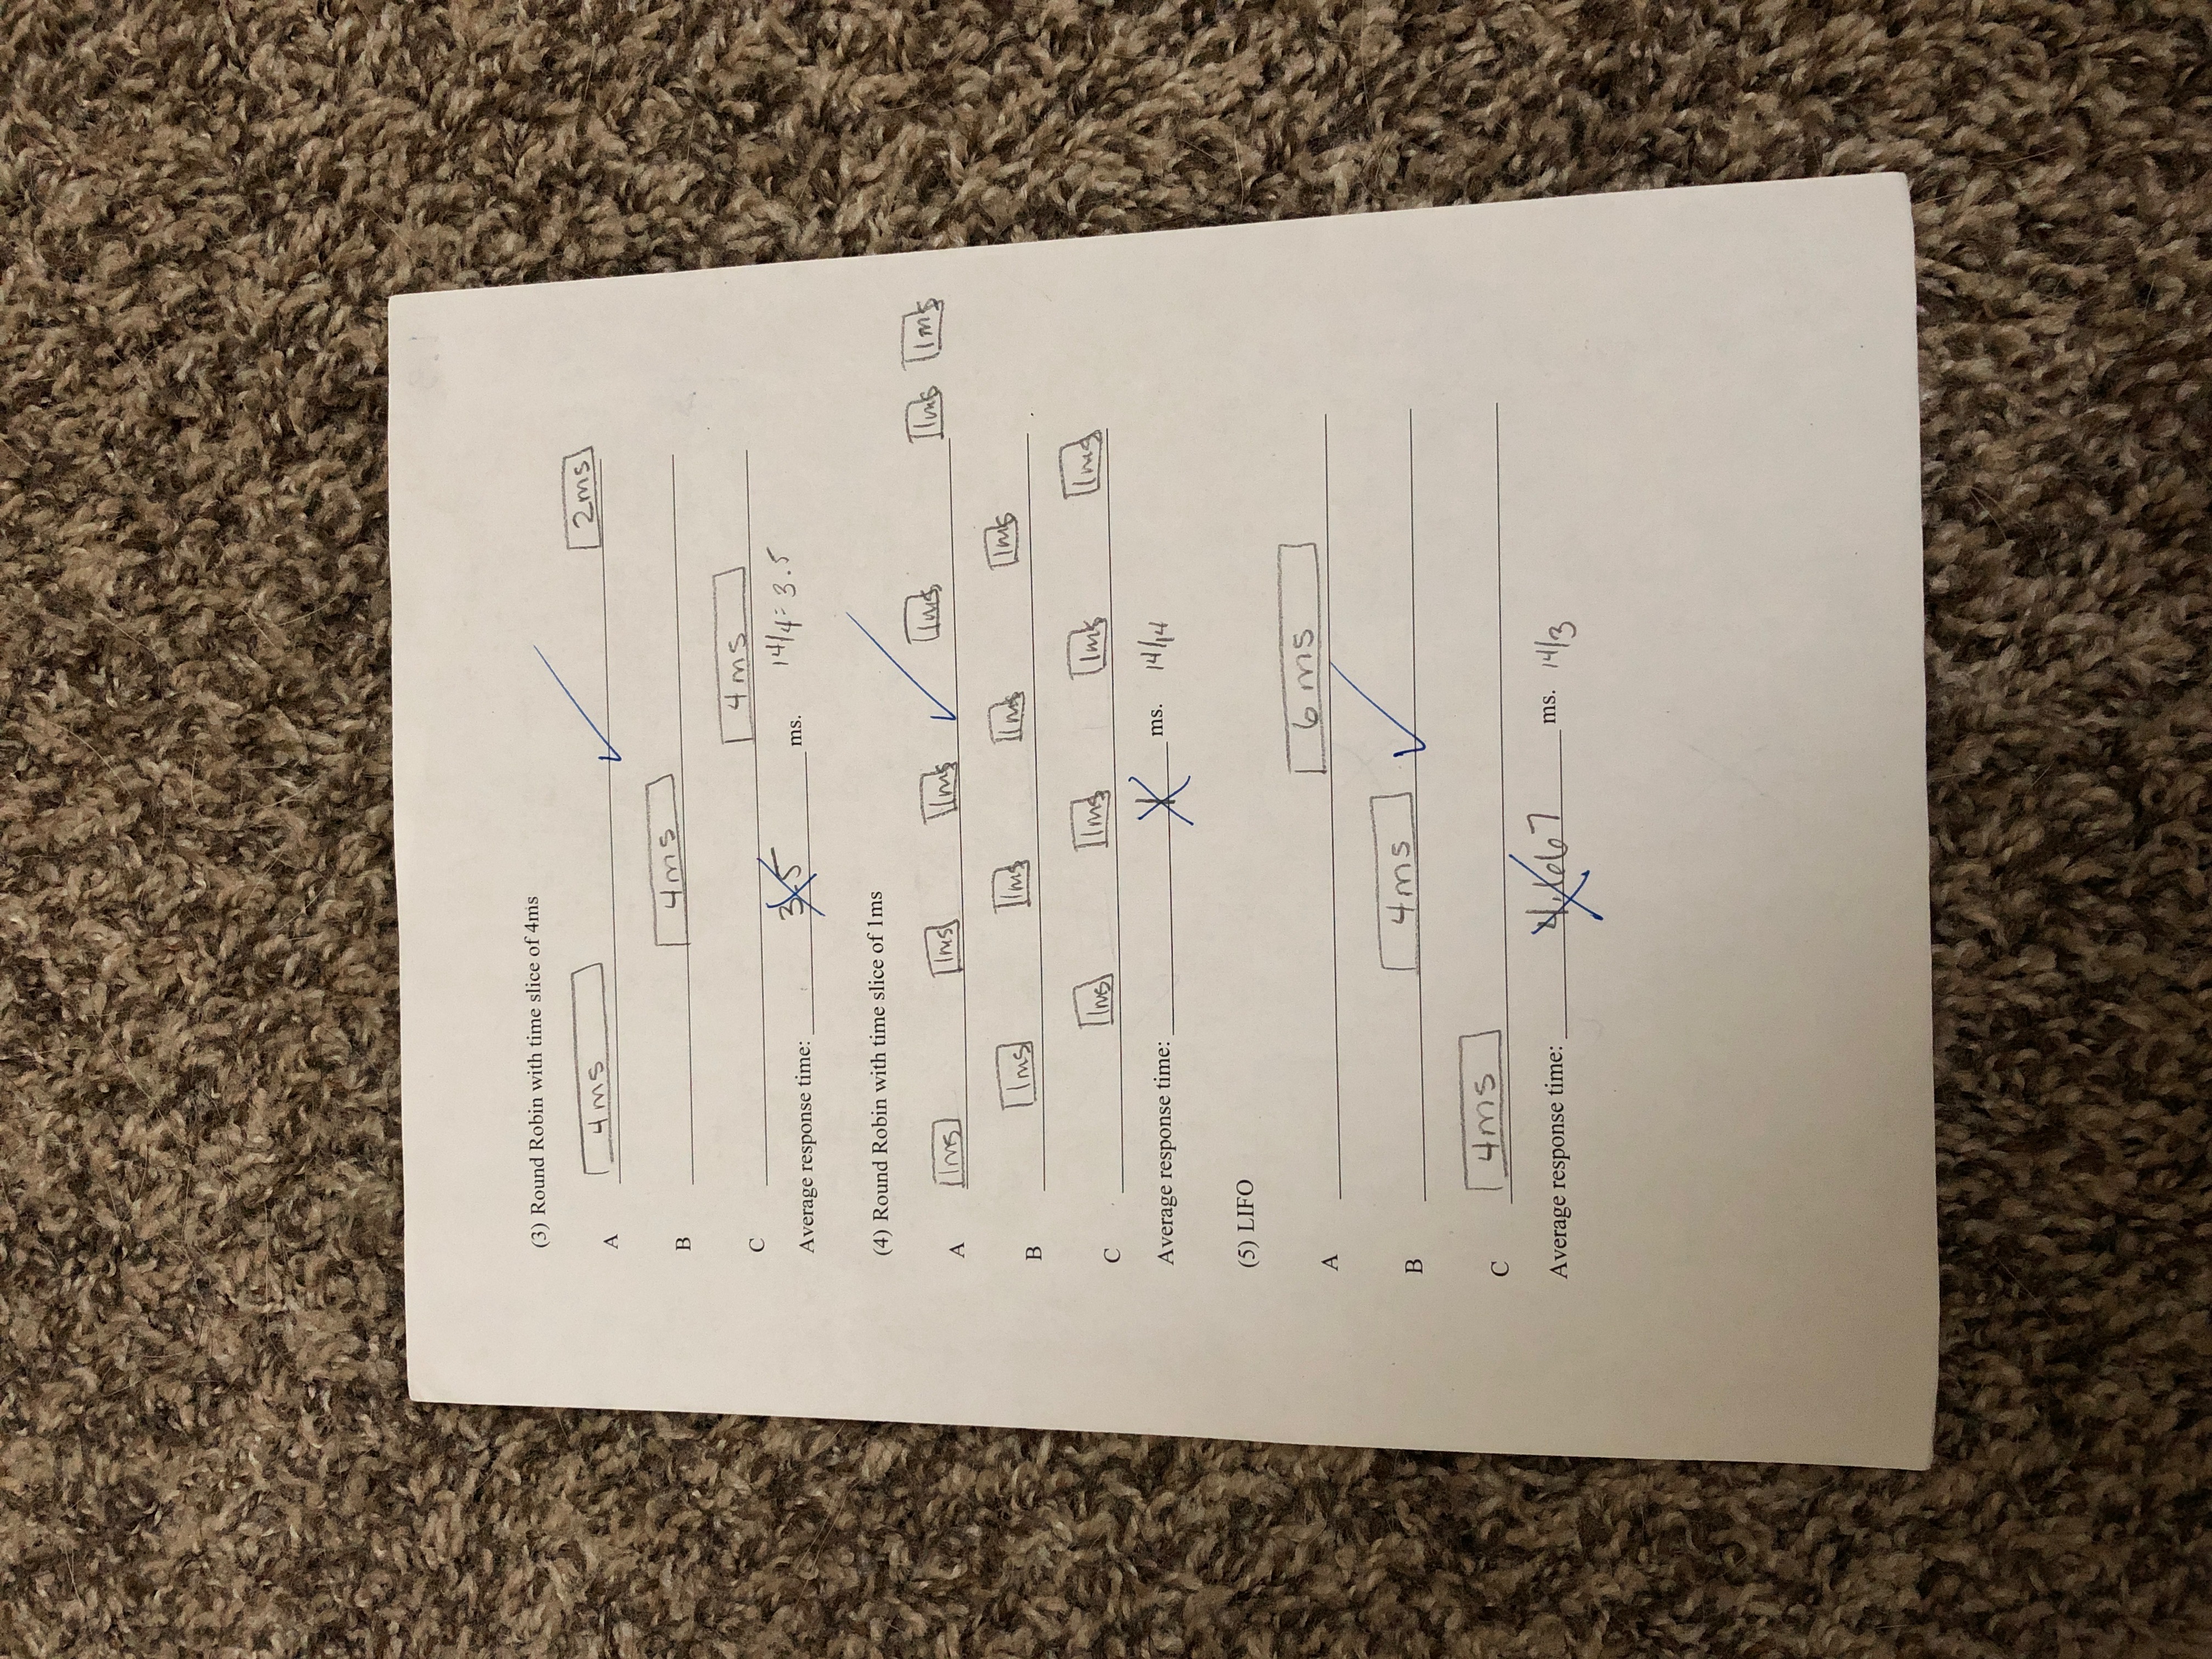 (3) Round Robin with time slice of 4ms
A 4ms 2ms
B 4ms
C 4ms
Average response time: 3.5 ms. 14/4= 3.5
(4) Round Robin with time slice of 1ms
A 1ms 1ms 1ms 1ms 1ms 1ms
B 1ms 1ms 1ms 1ms
C 1ms 1ms 1ms 1ms
Average response time: 1 ms. 14/14
(5) LIFO
A 6 ms
B 4ms
C 4ms
Average response time: 4.667 ms. 14/3